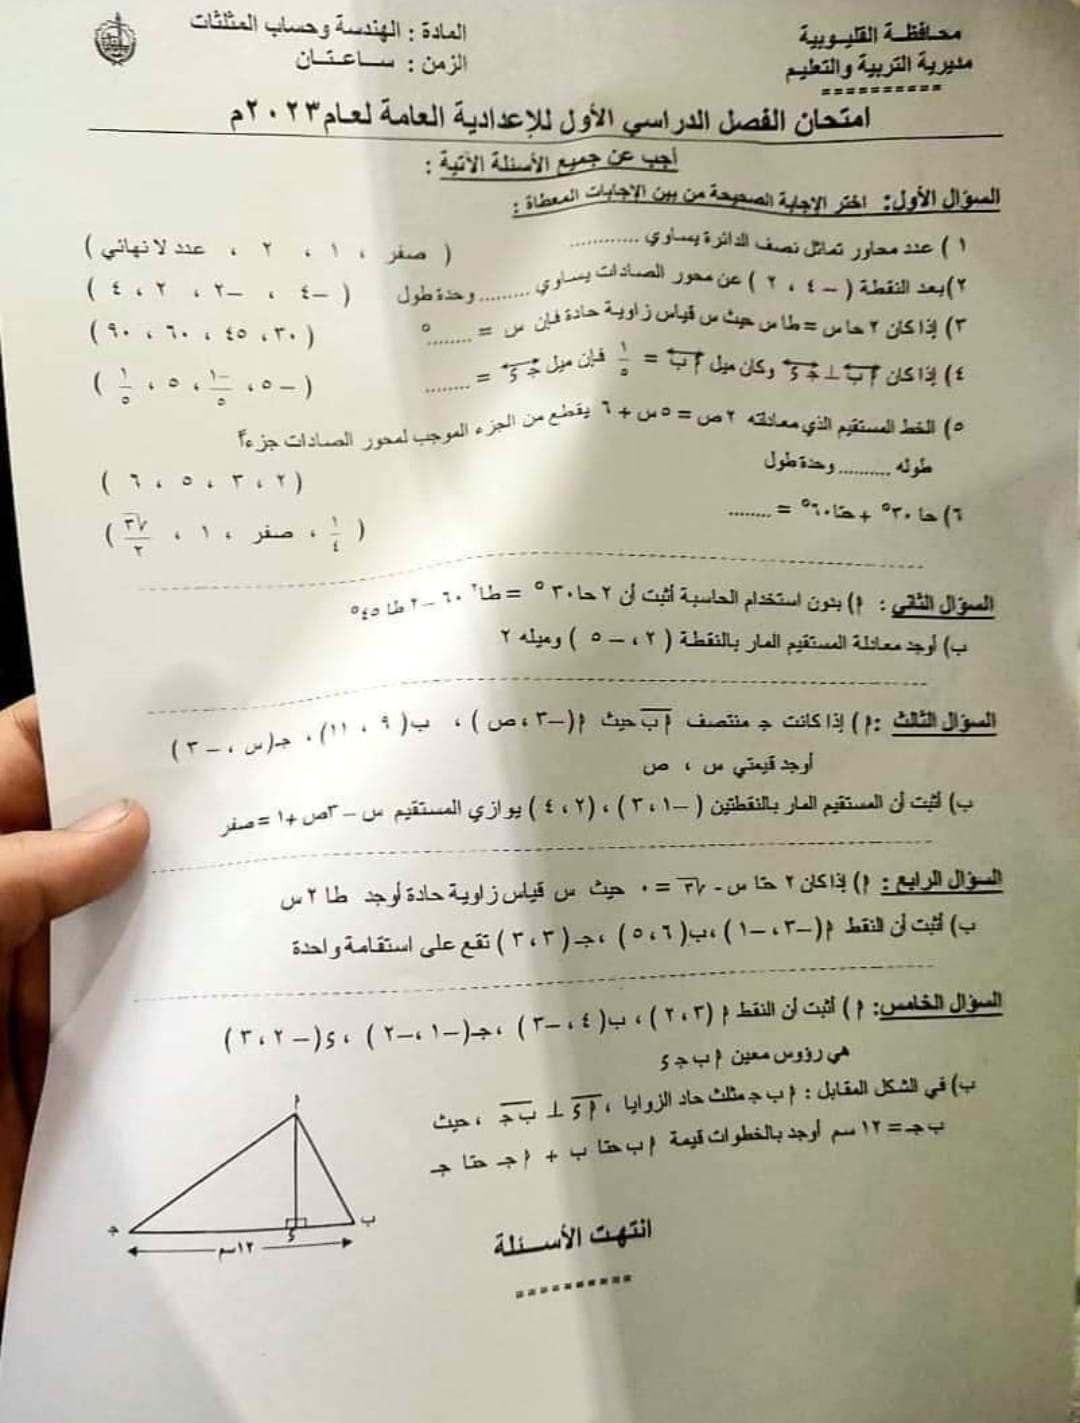 محافظة القليوبية
مديرية التربية والتعليم
المادة : الهندسة وحساب المثلثات
الزمن : ساعتان
امتحان الفصل الدراسي الأول للإعدادية العامة لعام ٢٠٢٣م
أجب عن جميع الأسئلة الآتية :
السؤال الأول: اختر الإجابة الصحيحة من بين الإجابات المعطاة :
١ ) عدد محاور تماثل نصف الدائرة يساوي ............ ( صفر ، ١ ، ٢ ، عدد لا نهائي )
٢)بعد النقطة ( – ٤ ، ٢ ) عن محور الصادات يساوي ......... وحدة طول ( –٤ ، –٢ ، ٢ ، ٤ )
٣) إذا كان ٢ حا س = طا س حيث س قياس زاوية حادة فإن س = ........° ( ٣٠ ، ٤٥ ، ٦٠ ، ٩٠ )
٤) إذا كان أ ب ⊥ جـ ء وكان ميل أ ب = ١/٥ فإن ميل جـ ء = ........ ( – ٥ ، –١/٥ ، ٥ ، ١/٥ )
٥) الخط المستقيم الذي معادلته ٢ ص = ٥ س + ٦ يقطع من الجزء الموجب لمحور الصادات جزءاً
طوله .......... وحدة طول
( ٢ ، ٣ ، ٥ ، ٦ )
٦) حا ٣٠° + حتا ٦٠° = ........ ( ١/٤ ، صفر ، ١ ، √٣/٢ )
السؤال الثاني : أ) بدون استخدام الحاسبة أثبت أن ٢ حا ٣٠° = طا٢ ٦٠ – ٢ طا ٤٥°
ب) أوجد معادلة المستقيم المار بالنقطة ( ٢ ، – ٥ ) وميله ٢
السؤال الثالث :أ ) إذا كانت جـ منتصف أ ب حيث أ (–٣ ، ص ) ، ب( ٩ ، ١١) ، جـ(س ، –٣ )
أوجد قيمتي س ، ص
ب) أثبت أن المستقيم المار بالنقطتين ( –١ ، ٣ ) ، ( ٢ ، ٤ ) يوازي المستقيم س – ٣ص + ١ = صفر
السؤال الرابع : أ) إذا كان ٢ حتا س - √٣ = ٠ حيث س قياس زاوية حادة أوجد طا ٢ س
ب) أثبت أن النقط أ (–٣ ، –١ ) ،ب( ٦ ، ٥ ) ،جـ( ٣ ، ٣ ) تقع على استقامة واحدة
السؤال الخامس: أ ) أثبت أن النقط أ (٣ ، ٢ ) ، ب( ٤ ، –٣ ) ،جـ(–١ ، –٢ ) ، ء( – ٢ ، ٣ )
هي رؤوس معين أ ب جـ ء
ب) في الشكل المقابل : أ ب جـ مثلث حاد الزوايا ، أ ء ⊥ ب جـ ، حيث
ب جـ = ١٢ سم أوجد بالخطوات قيمة أ ب حتا ب + أ جـ حتا جـ
أ
ب
جـ
ء
١٢سم
انتهت الأسئلة